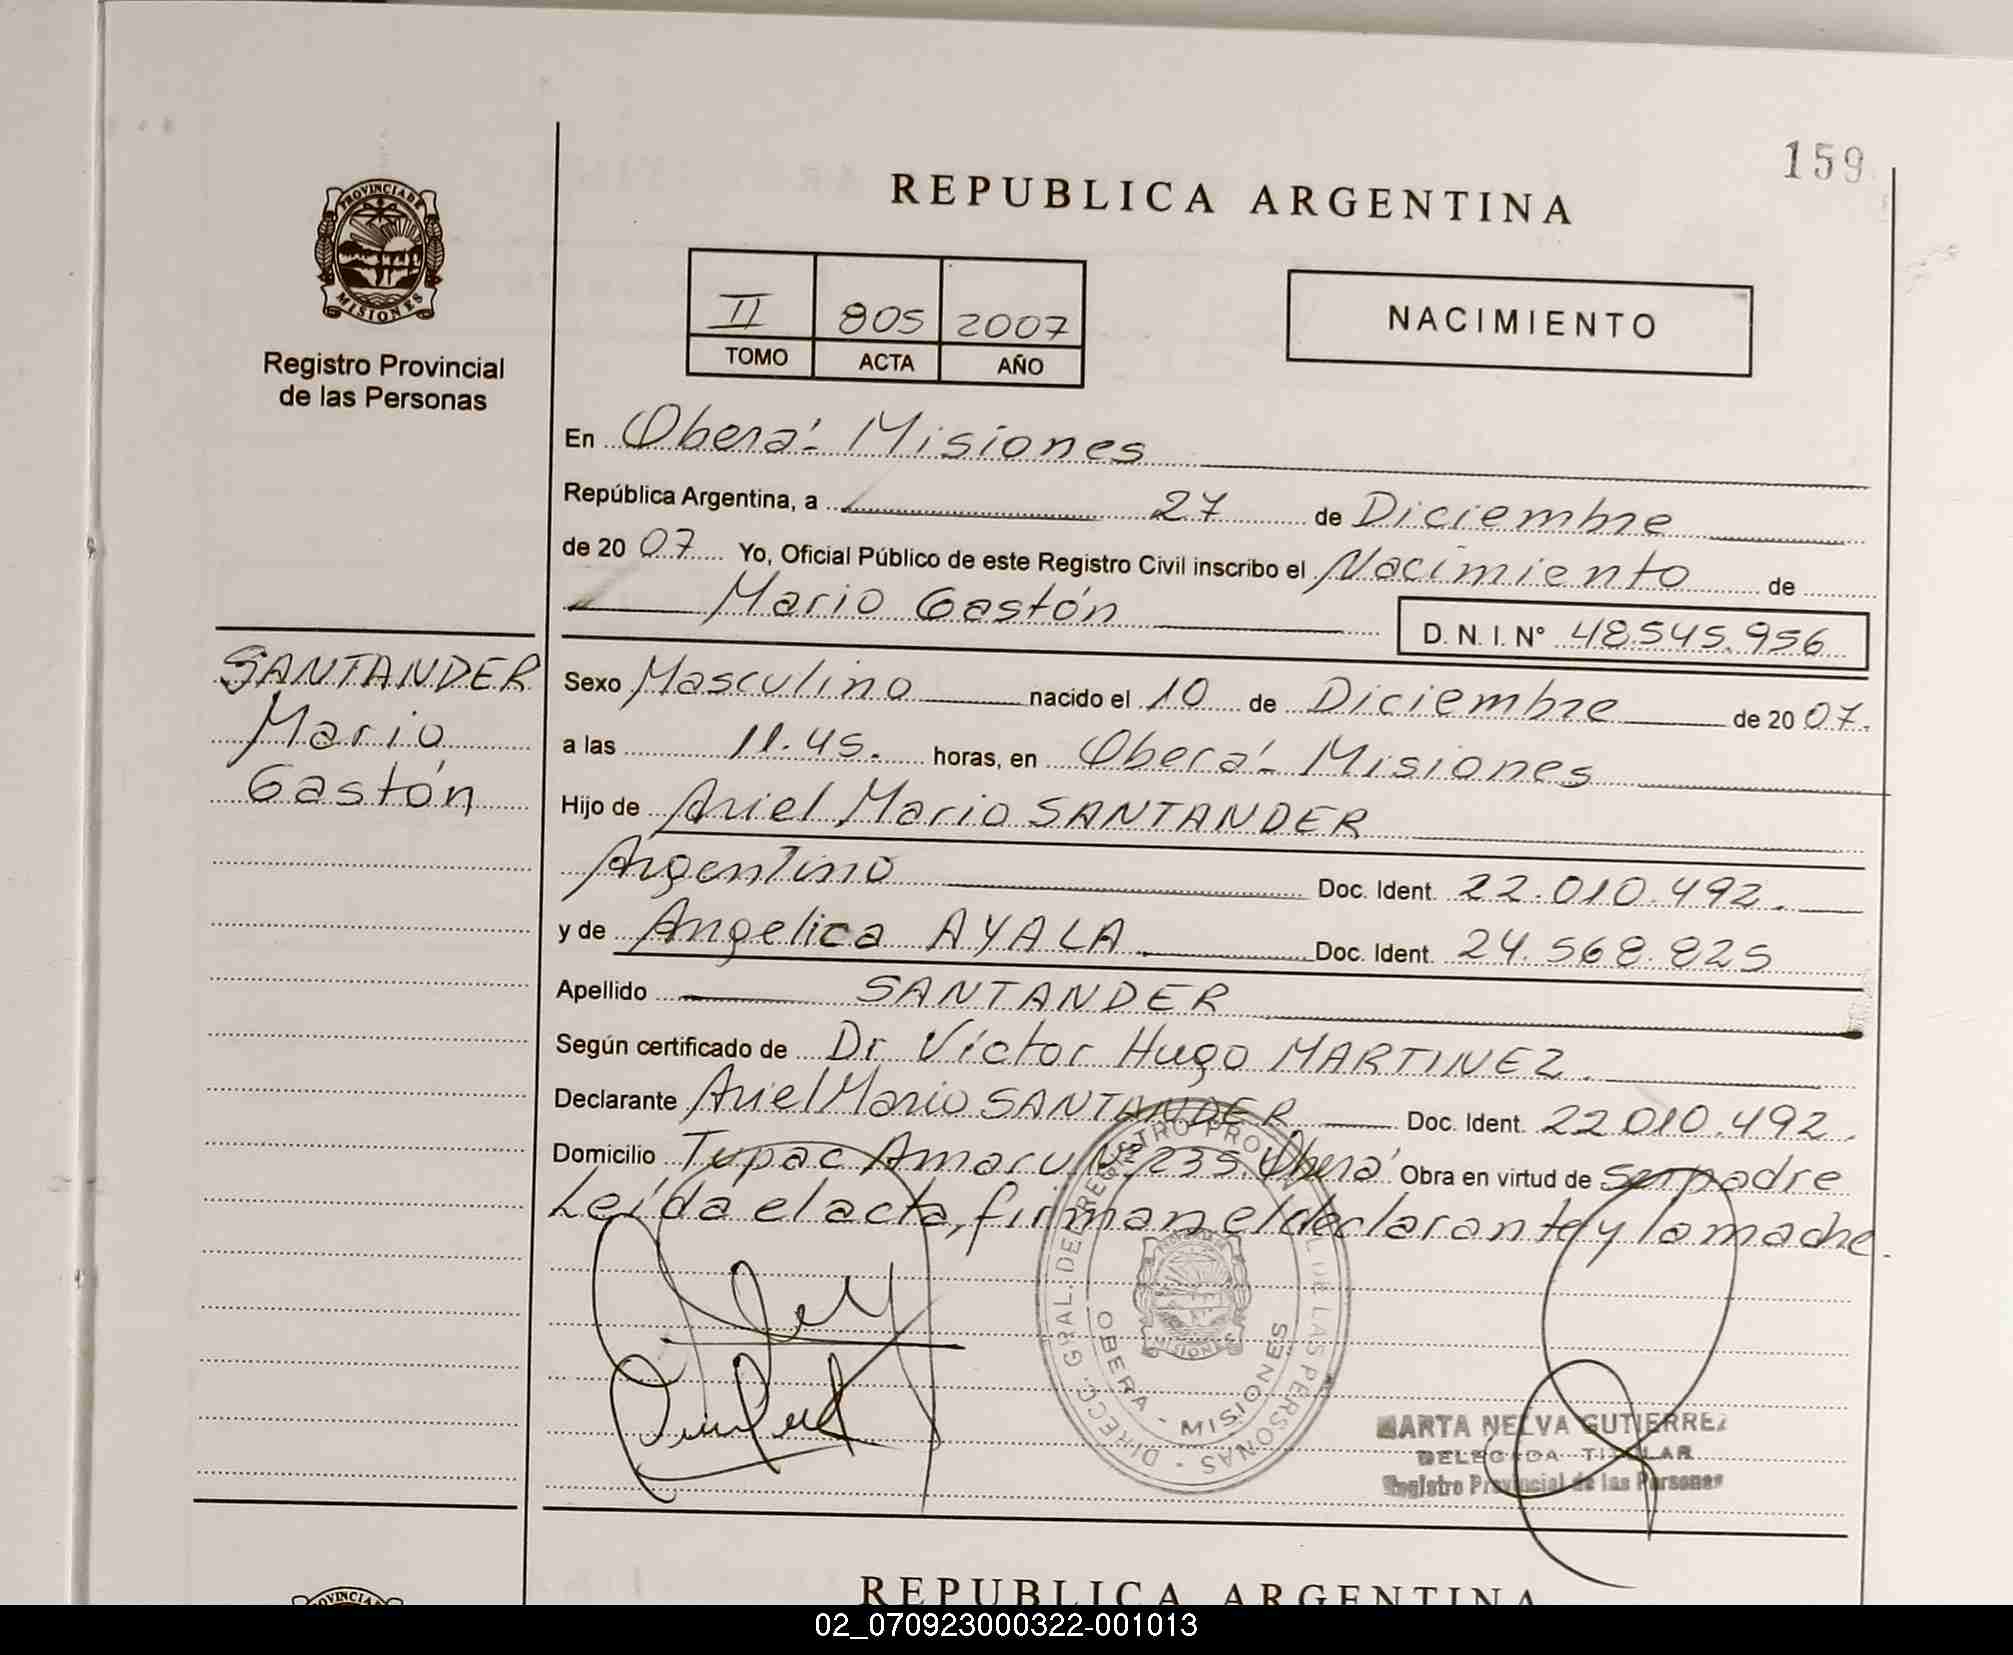 159
PROVINCIA DE
MISIONES
Registro Provincial
de las Personas
REPUBLICA ARGENTINA
II 805 2007
TOMO ACTA AÑO
NACIMIENTO
En Oberá - Misiones
República Argentina, a 27 de Diciembre
de 2007 Yo, Oficial Público de este Registro Civil inscribo el Nacimiento de
Mario Gastón
D. N. I. N° 48.545.956
SANTANDER
Mario
Gastón
Sexo Masculino nacido el 10 de Diciembre de 2007.
a las 11.45. horas, en Oberá - Misiones
Hijo de Ariel Mario SANTANDER
Argentino Doc. Ident. 22.010.492.
y de Angelica AYALA Doc. Ident. 24.568.825
Apellido SANTANDER
Según certificado de Dr Víctor Hugo MARTINEZ.
Declarante Ariel Mario SANTANDER Doc. Ident. 22010.492.
Domicilio Tupac Amaru Nº 235. Oberá Obra en virtud de ser padre
Leída el acta, firman el declarante y la madre.
DIRECC. GRAL. DE REGISTRO PROVINCIAL DE LAS PERSONAS -
OBERA - MISIONES
MISIONES
MARTA NELVA GUTIERREZ
DELEGADA TITULAR
Registro Provincial de las Personas
PROVINCIA
REPUBLICA ARGENTINA
02_070923000322-001013